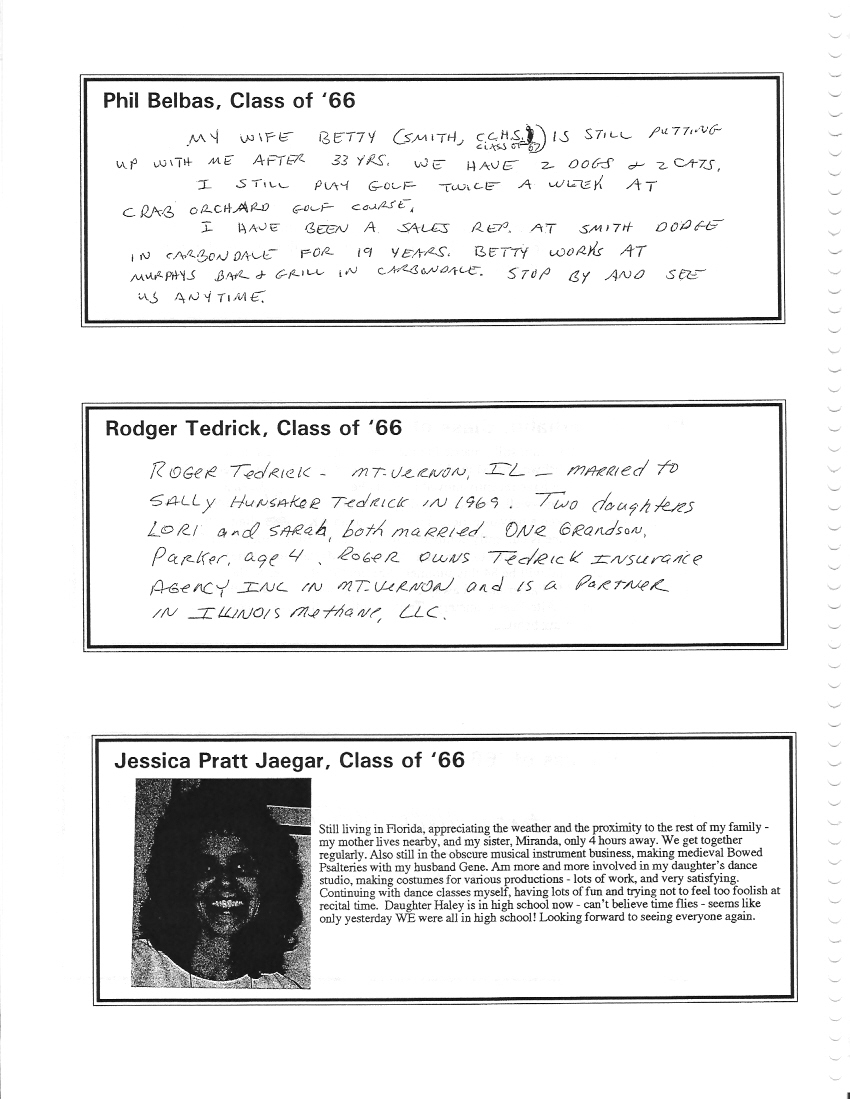 Phil Belbas, Class of ‘66
MY WIFE BETTY (SMITH, C.C.H.S. CLASS OF 67) IS STILL PUTTING
UP WITH ME AFTER 33 YRS. WE HAVE 2 DOGS & 2 CATS,
I STILL PLAY GOLF TWICE A WEEK AT
CRAB ORCHARD GOLF COURSE,
I HAVE BEEN A SALES REP. AT SMITH DODGE
IN CARBONDALE FOR 19 YEARS. BETTY WORKS AT
MURPHYS BAR & GRILL IN CARBONDALE. STOP BY AND SEE
US ANYTIME.
Rodger Tedrick, Class of ‘66
ROGER TEDRICK - MT. VERNON, IL - MARRIED to
SALLY HUNSAKER TEDRICK IN 1969. Two daughters
LORI and SARah, both married. ONE GRandson,
Parker, age 4. ROGER OWNS TEDRICK INSURANCE
AGENCY INC IN MT. VERNON and is a PARTNER
IN ILLINOIS Methane, LLC.
Jessica Pratt Jaegar, Class of ‘66
Still living in Florida, appreciating the weather and the proximity to the rest of my family -
my mother lives nearby, and my sister, Miranda, only 4 hours away. We get together
regularly. Also still in the obscure musical instrument business, making medieval Bowed
Psalteries with my husband Gene. Am more and more involved in my daughter's dance
studio, making costumes for various productions - lots of work, and very satisfying.
Continuing with dance classes myself, having lots of fun and trying not to feel too foolish at
recital time. Daughter Haley is in high school now - can't believe time flies - seems like
only yesterday WE were all in high school! Looking forward to seeing everyone again.